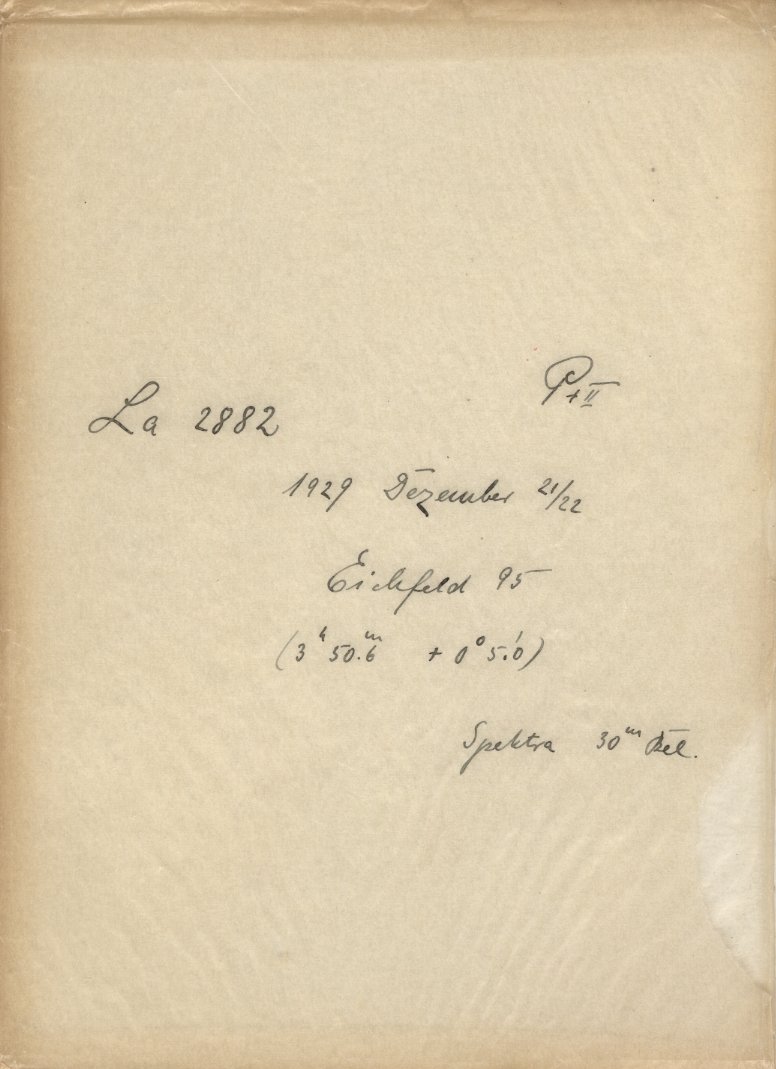 P + II
La 2882
1929 Dezember 21/22
Eichfeld 95
(3ʰ 50.6ᵐ + 0° 5.'0)
Spektra 30ᵐ Bel.